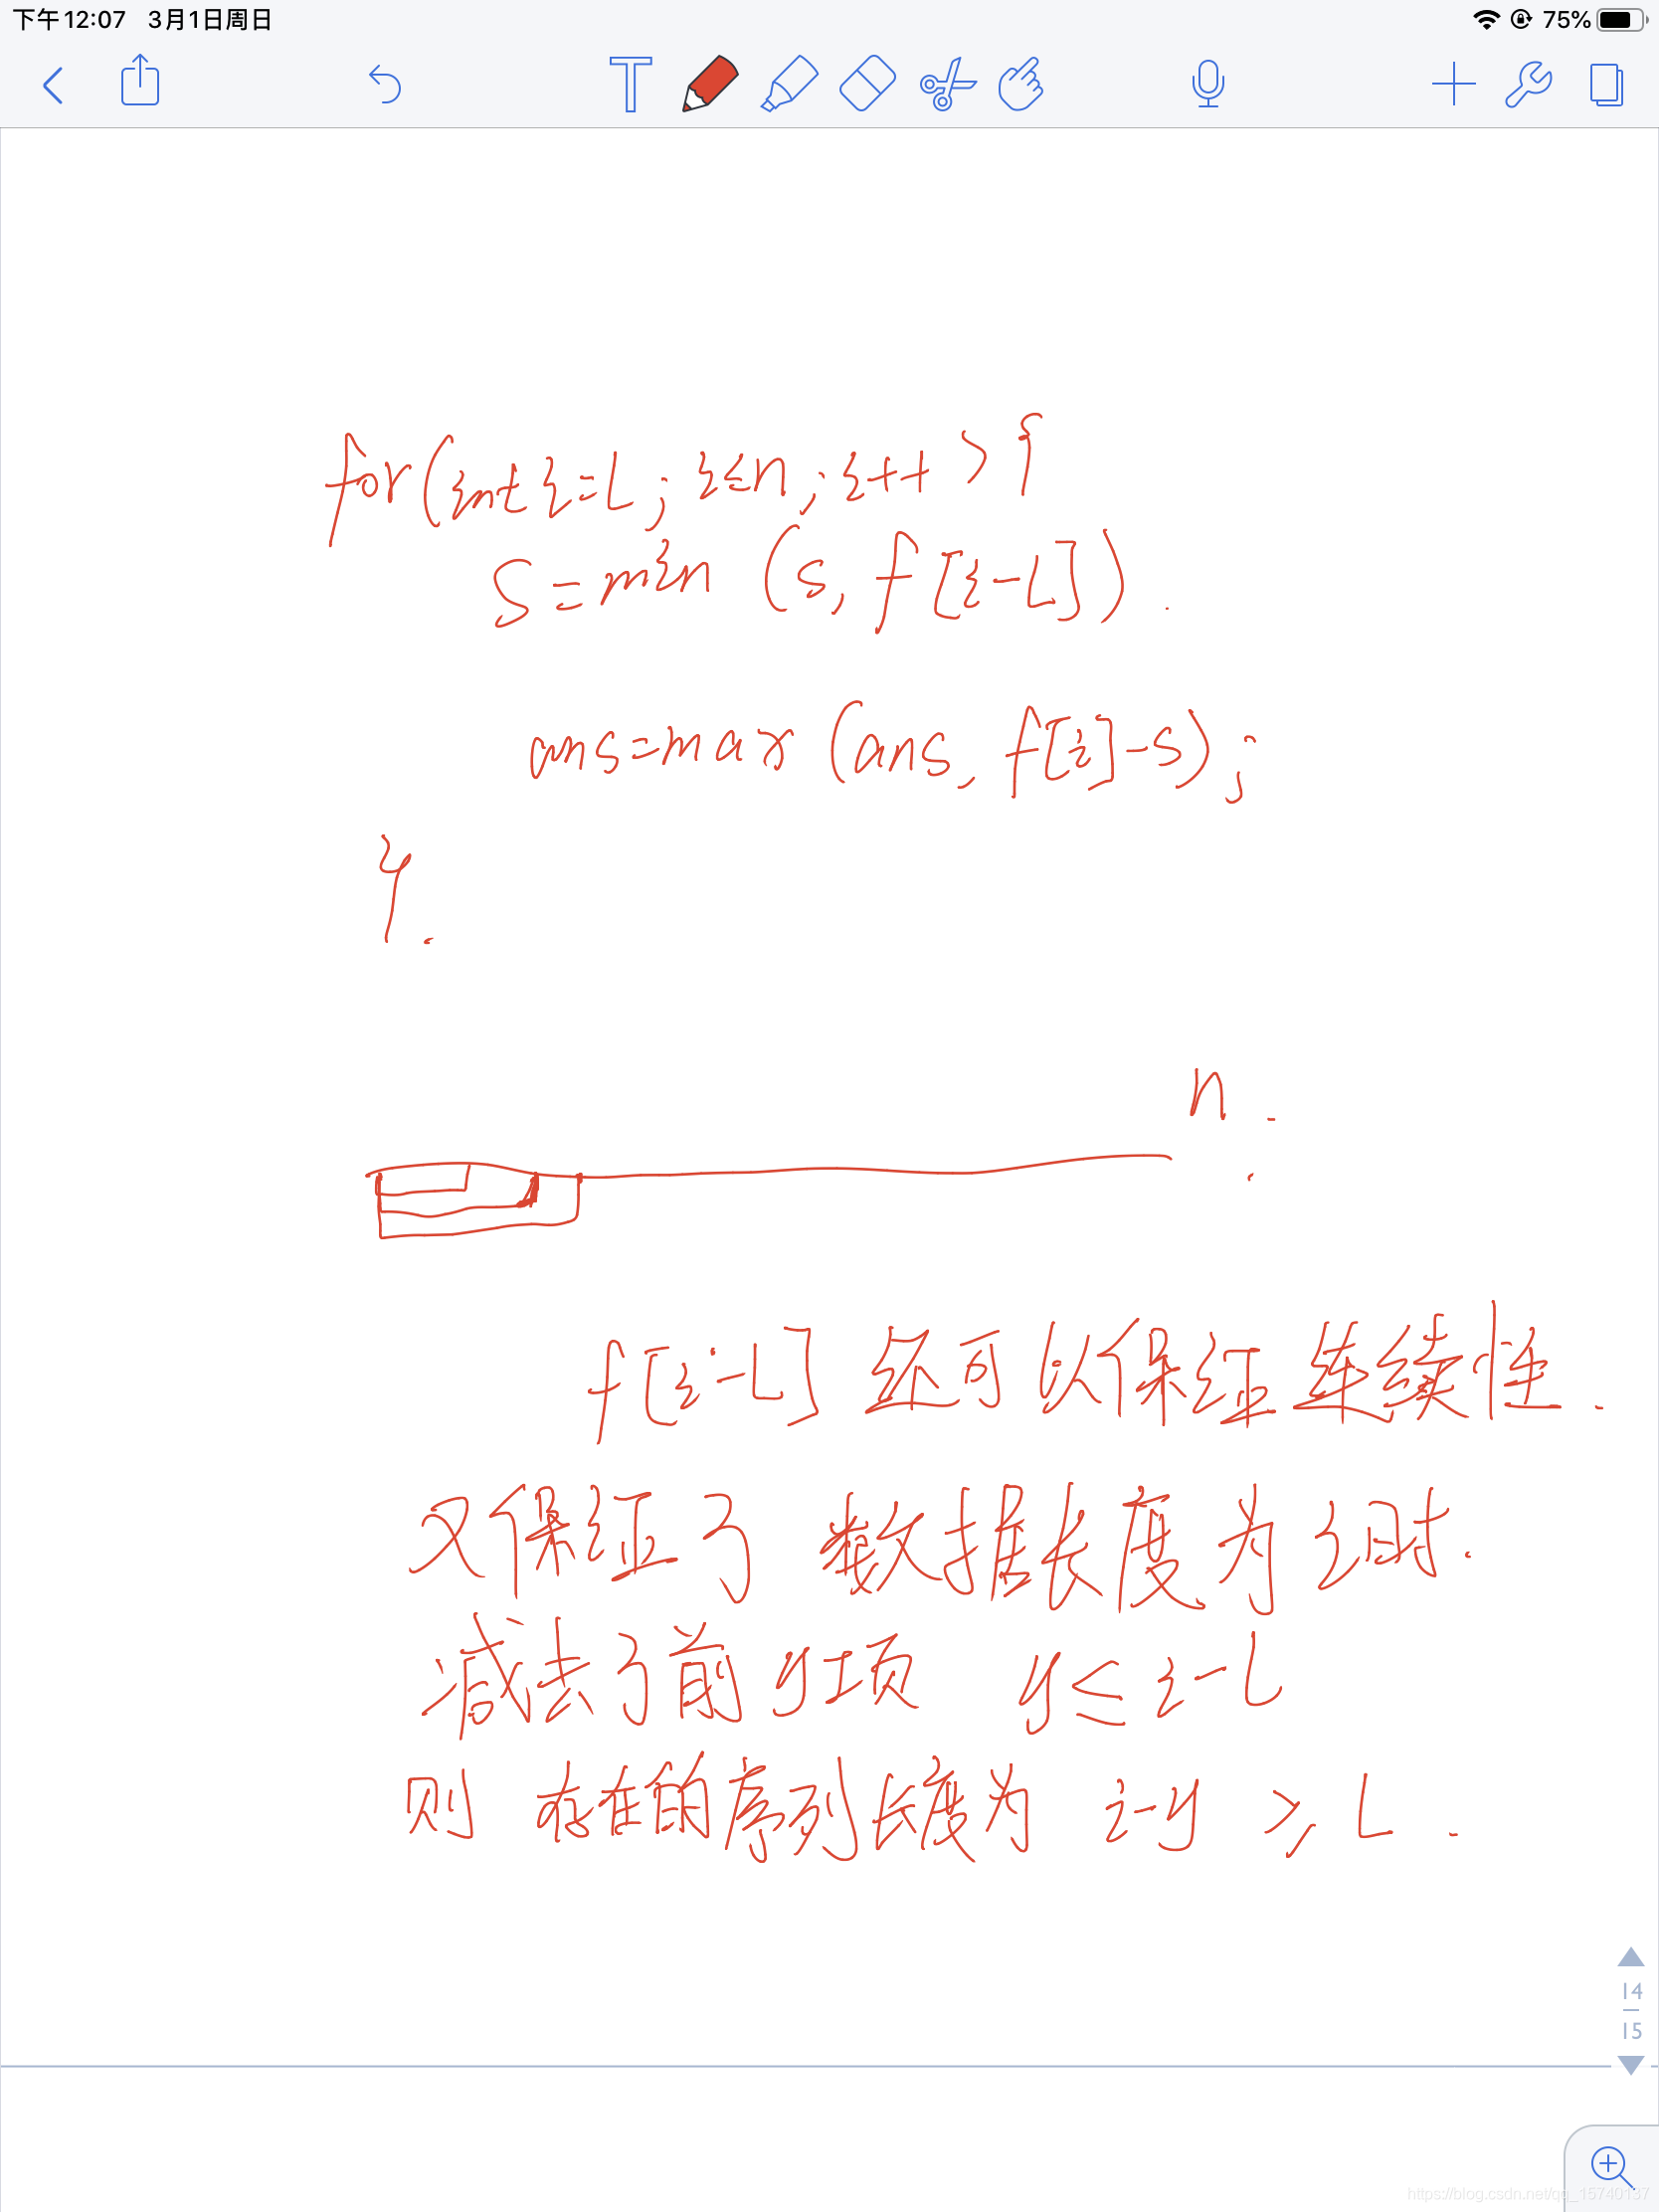 下午12:07 3月1日周日
75%
T
for(int i=L; i≤n; i++){
s=min(s, f[i-L]).
ans=max(ans, f[i]-s);
}.
n.
f[i-L] 还可以保证连续性.
又保证了 数据长度为 i时.
减去了前 y项 y≤i-L
则 存在的序列长度为 i-y ≥ L.
14
15
https://blog.csdn.net/qq_15740137